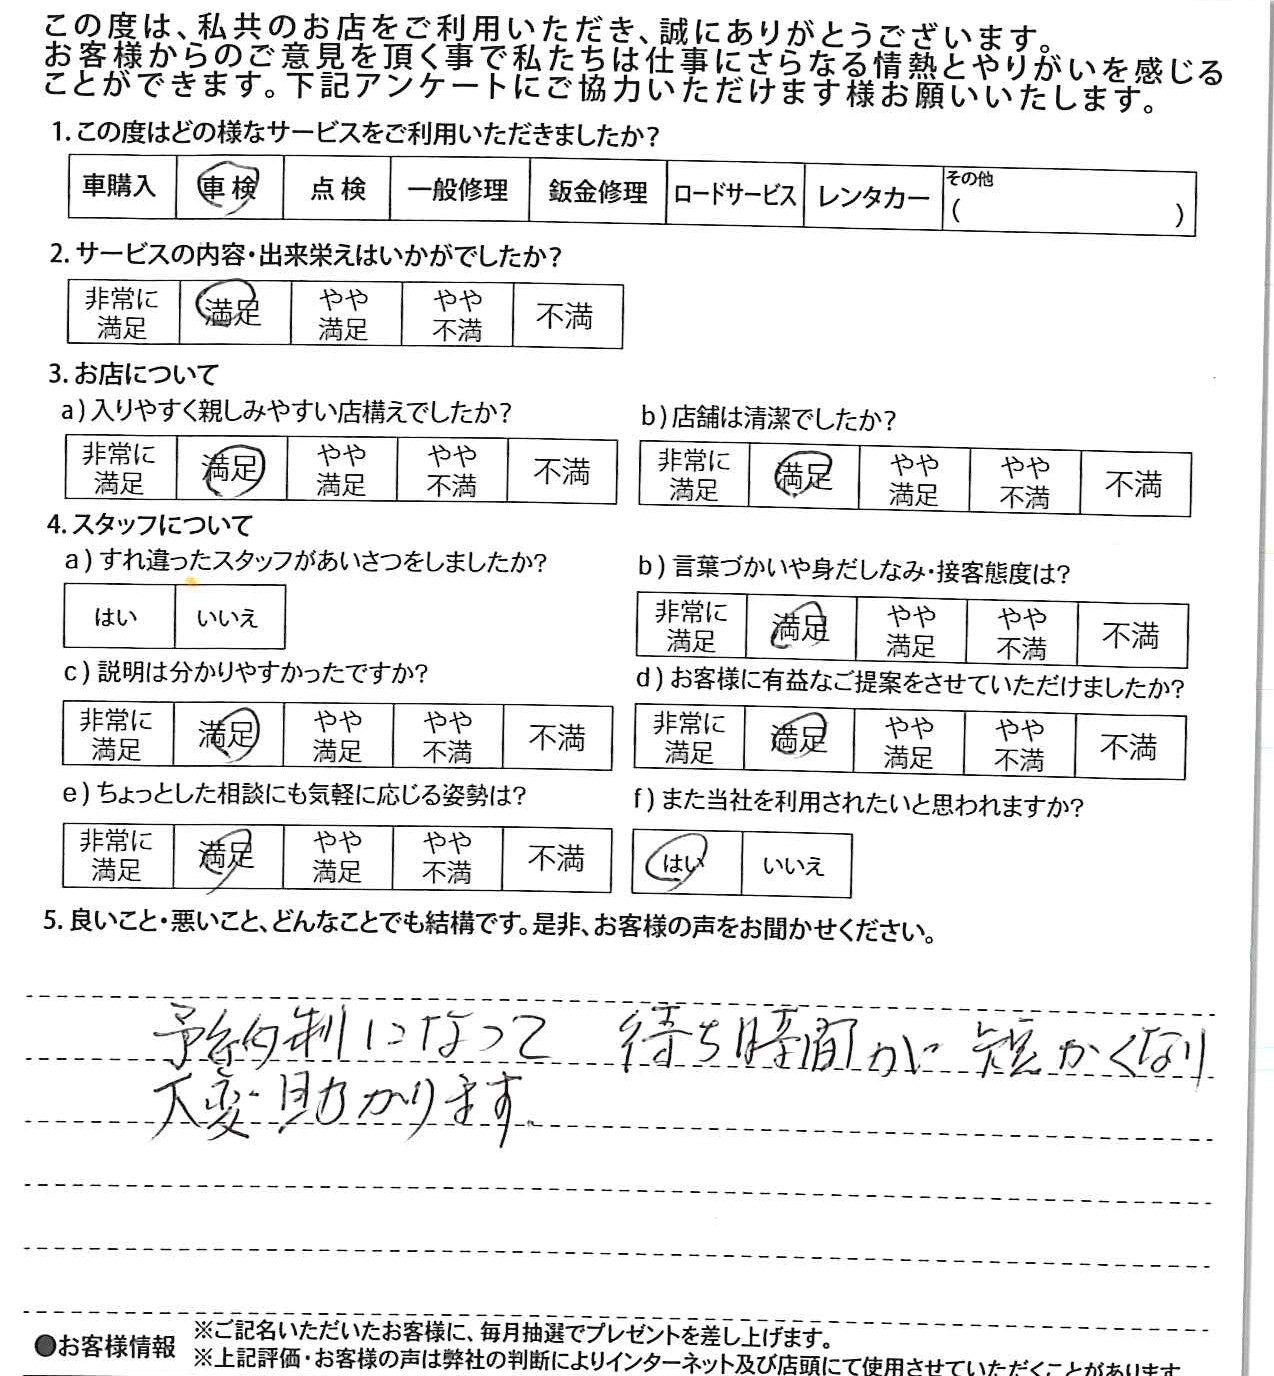 この度は、私共のお店をご利用いただき、誠にありがとうございます。
お客様からのご意見を頂く事で私たちは仕事にさらなる情熱とやりがいを感じる
ことができます。下記アンケートにご協力いただけます様お願いいたします。
1.この度はどの様なサービスをご利用いただきましたか?
車購入 車検 点検 一般修理 鈑金修理 ロードサービス レンタカー その他 ( )
2.サービスの内容・出来栄えはいかがでしたか?
非常に満足 満足 やや満足 やや不満 不満
3.お店について
a)入りやすく親しみやすい店構えでしたか? b)店舗は清潔でしたか?
非常に満足 満足 やや満足 やや不満 不満 非常に満足 満足 やや満足 やや不満 不満
4.スタッフについて
a)すれ違ったスタッフがあいさつをしましたか? b)言葉づかいや身だしなみ・接客態度は?
はい いいえ 非常に満足 満足 やや満足 やや不満 不満
c)説明は分かりやすかったですか? d)お客様に有益なご提案をさせていただけましたか?
非常に満足 満足 やや満足 やや不満 不満 非常に満足 満足 やや満足 やや不満 不満
e)ちょっとした相談にも気軽に応じる姿勢は? f)また当社を利用されたいと思われますか?
非常に満足 満足 やや満足 やや不満 不満 はい いいえ
5.良いこと・悪いこと、どんなことでも結構です。是非、お客様の声をお聞かせください。
予約制になって 待ち時間が 短かくなり
大変助かります。
●お客様情報 ※ご記名いただいたお客様に、毎月抽選でプレゼントを差し上げます。
※上記評価・お客様の声は弊社の判断によりインターネット及び店頭にて使用させていただくことがあります